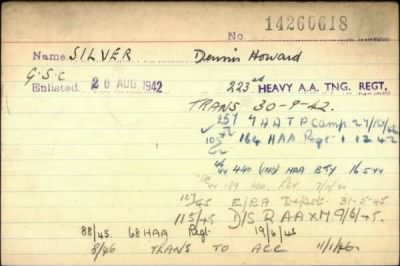 No. 14260618
Name. SILVER Dennis Howard
G.S.C
Enlisted. 20 AUG 1942 223rd HEAVY A.A. TNG. REGT,
TRANS 30-9-42.
257/42 HAATP Camp
105/42 164 HAA Regt 1 12 42
46/44 440 HAA BTY 16 5 44
189 HAA, Rgt 7/11/44
107/45 E/RA Depot 31-5-45
115/45 D/S R A 9/6/45.
88/45. 68 HAA Regt. 19/6/45
8/46 TRANS TO ACC 11/1/46.